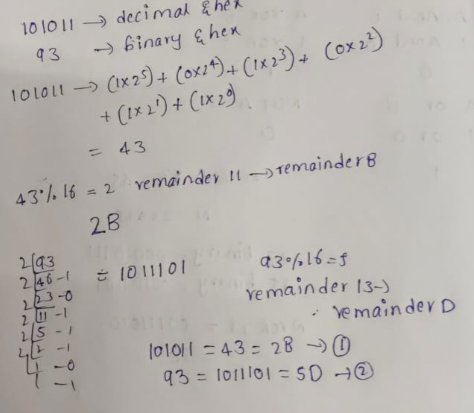 101011 → decimal & hex
93 → binary & hex
101011 → (1x2⁵) + (0x2⁴) + (1x2³) + (0x2²)
+ (1x2¹) + (1x2⁰)
= 43
43%16 = 2 remainder 11 → remainder B
2B
2|93
2|46-1
2|23-0
2|11-1
2|5-1
2|2-1
1-0
1-1
= 1011101
93%16=5
remainder 13→
remainder D
101011 = 43 = 2B → ①
93 = 1011101 = 5D → ②